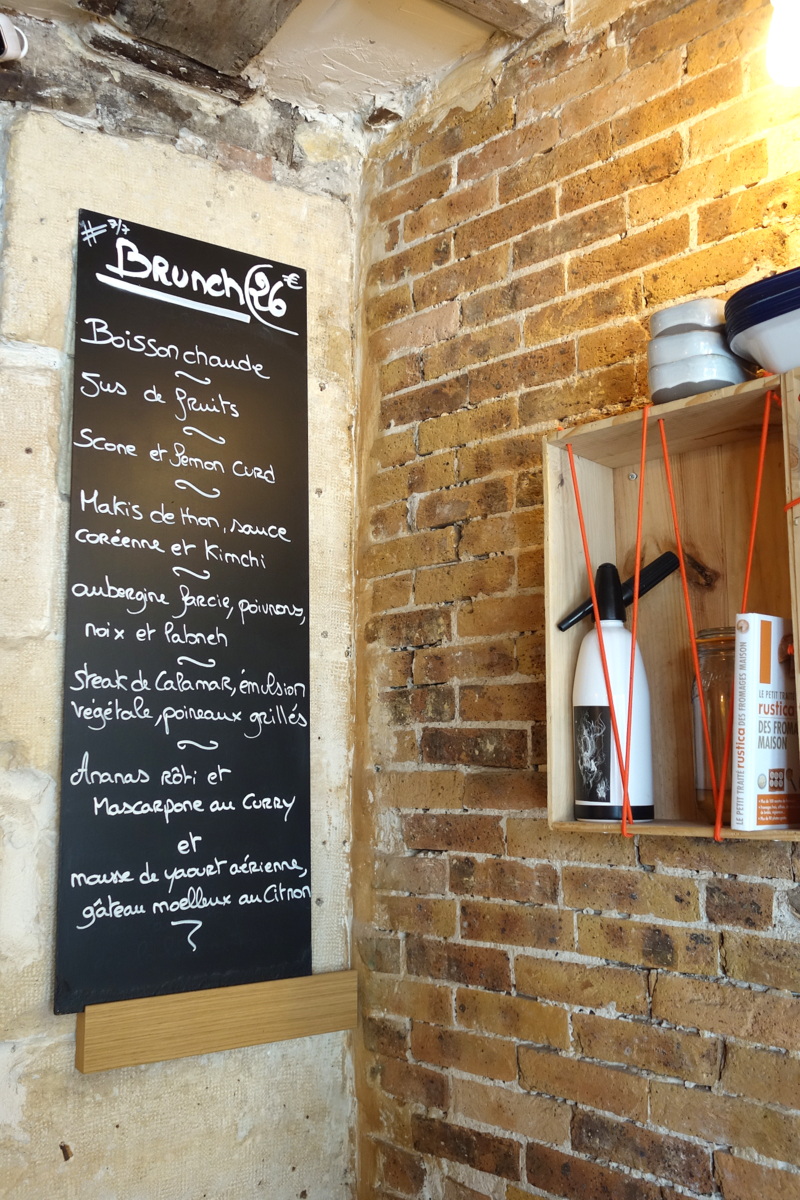 # 7/7
Brunch 26 €
Boisson chaude
~
Jus de fruits
~
Scone et lemon curd
~
Makis de thon, sauce
coréenne et Kimchi
~
aubergine farcie, poivrons,
noix et labneh
~
steak de Calamar, émulsion
végétale, poireaux grillés
~
Ananas rôti et
Mascarpone au Curry
et
mousse de yaourt aérienne,
gâteau moelleux au Citron
LE PETIT TRAITÉ rustica DES FROMAGES MAISON
LE PETIT TRAITÉ
rustica
DES FROMA
MAISON